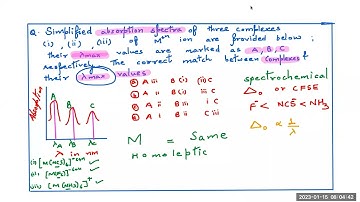 Q. Simplified absorption spectra of three complexes
(i), (ii), (iii) of M^n+ ion are provided below;
their λmax values are marked as A, B, C
respectively. The correct match between complexes &
their λmax values
Absorption
A B C
λA λB λC
λ in nm
(i) [M(NCS)6]
(ii) [MF6]
(iii) [M(NH3)6]
A iii B (i) (ii) C
A ii B i C iii
A ii B iii i C
A i B ii C iii
M = Same
Homoleptic
spectrochemical
Δo or CFSE
F⁻ < NCS⁻ < NH3
Δo ∝ 1/λ
2023-01-15 08:04:42